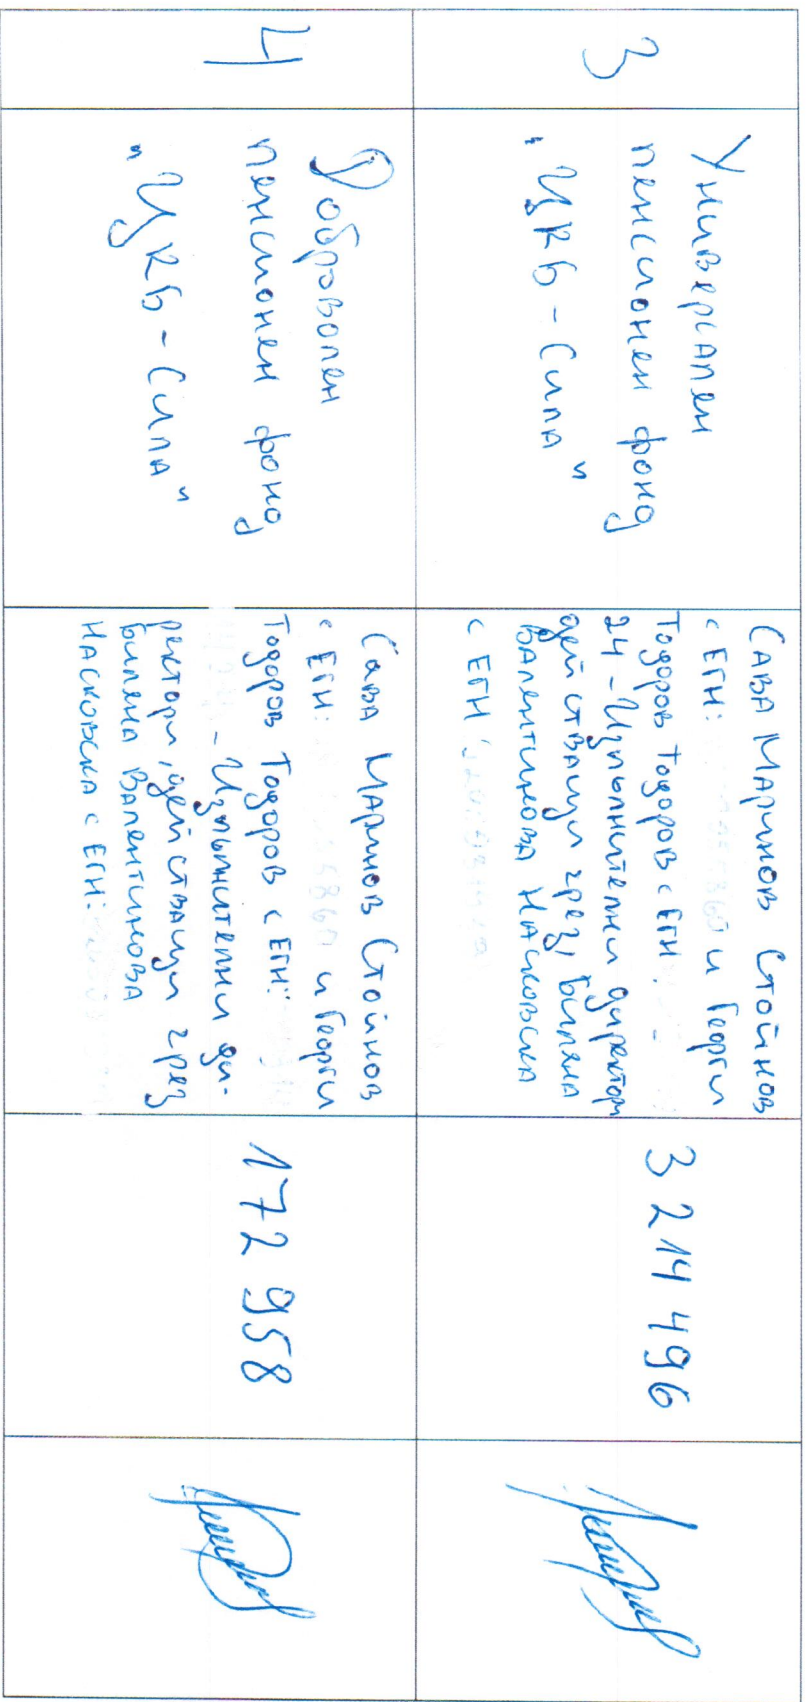 3
Универсален
пенсионен фонд
„ЦКБ - Сила"
Сава Маринов Стойнов
с ЕГН: и Георги
Тодоров Тодоров с ЕГН:
24 - Изпълнителни директори
действащи чрез Биляна
Валентинова Насковска
с ЕГН
3 214 496
4
Доброволен
пенсионен фонд
„ЦКБ - Сила"
Сава Маринов Стойнов
с ЕГН: и Георги
Тодоров Тодоров с ЕГН:
- Изпълнителни ди-
ректори, действащи чрез
Биляна Валентинова
Насковска с ЕГН:
172 958